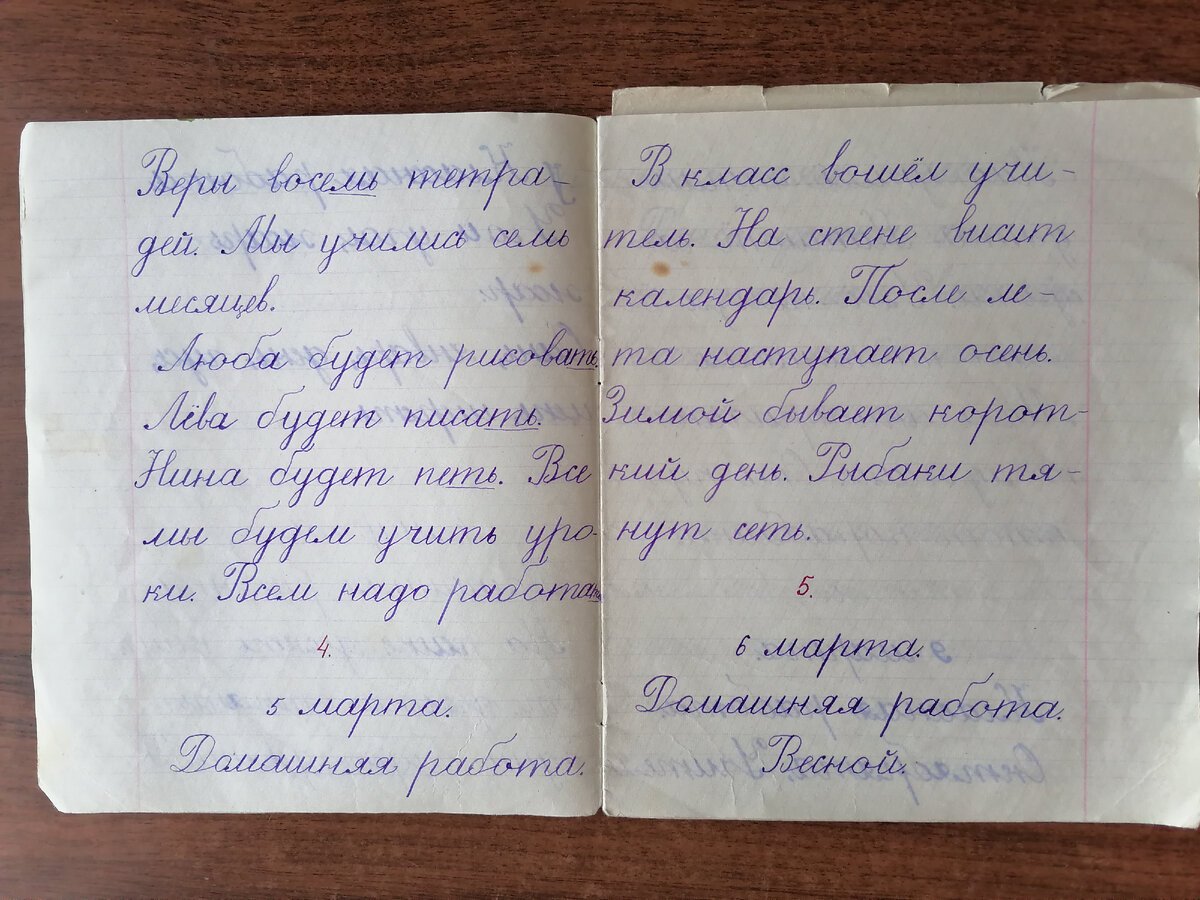 Веры восемь тетра-
дей. Мы учились семь
месяцев.
Люба будет рисовать.
Лёва будет писать.
Нина будет петь. Все
мы будем учить уро-
ки. Всем надо работать
4.
5 марта.
Домашняя работа.
В класс вошёл учи-
тель. На стене висит
календарь. После ле-
та наступает осень.
Зимой бывает корот-
кий день. Рыбаки тя-
нут сеть.
5.
6 марта.
Домашняя работа.
Весной.